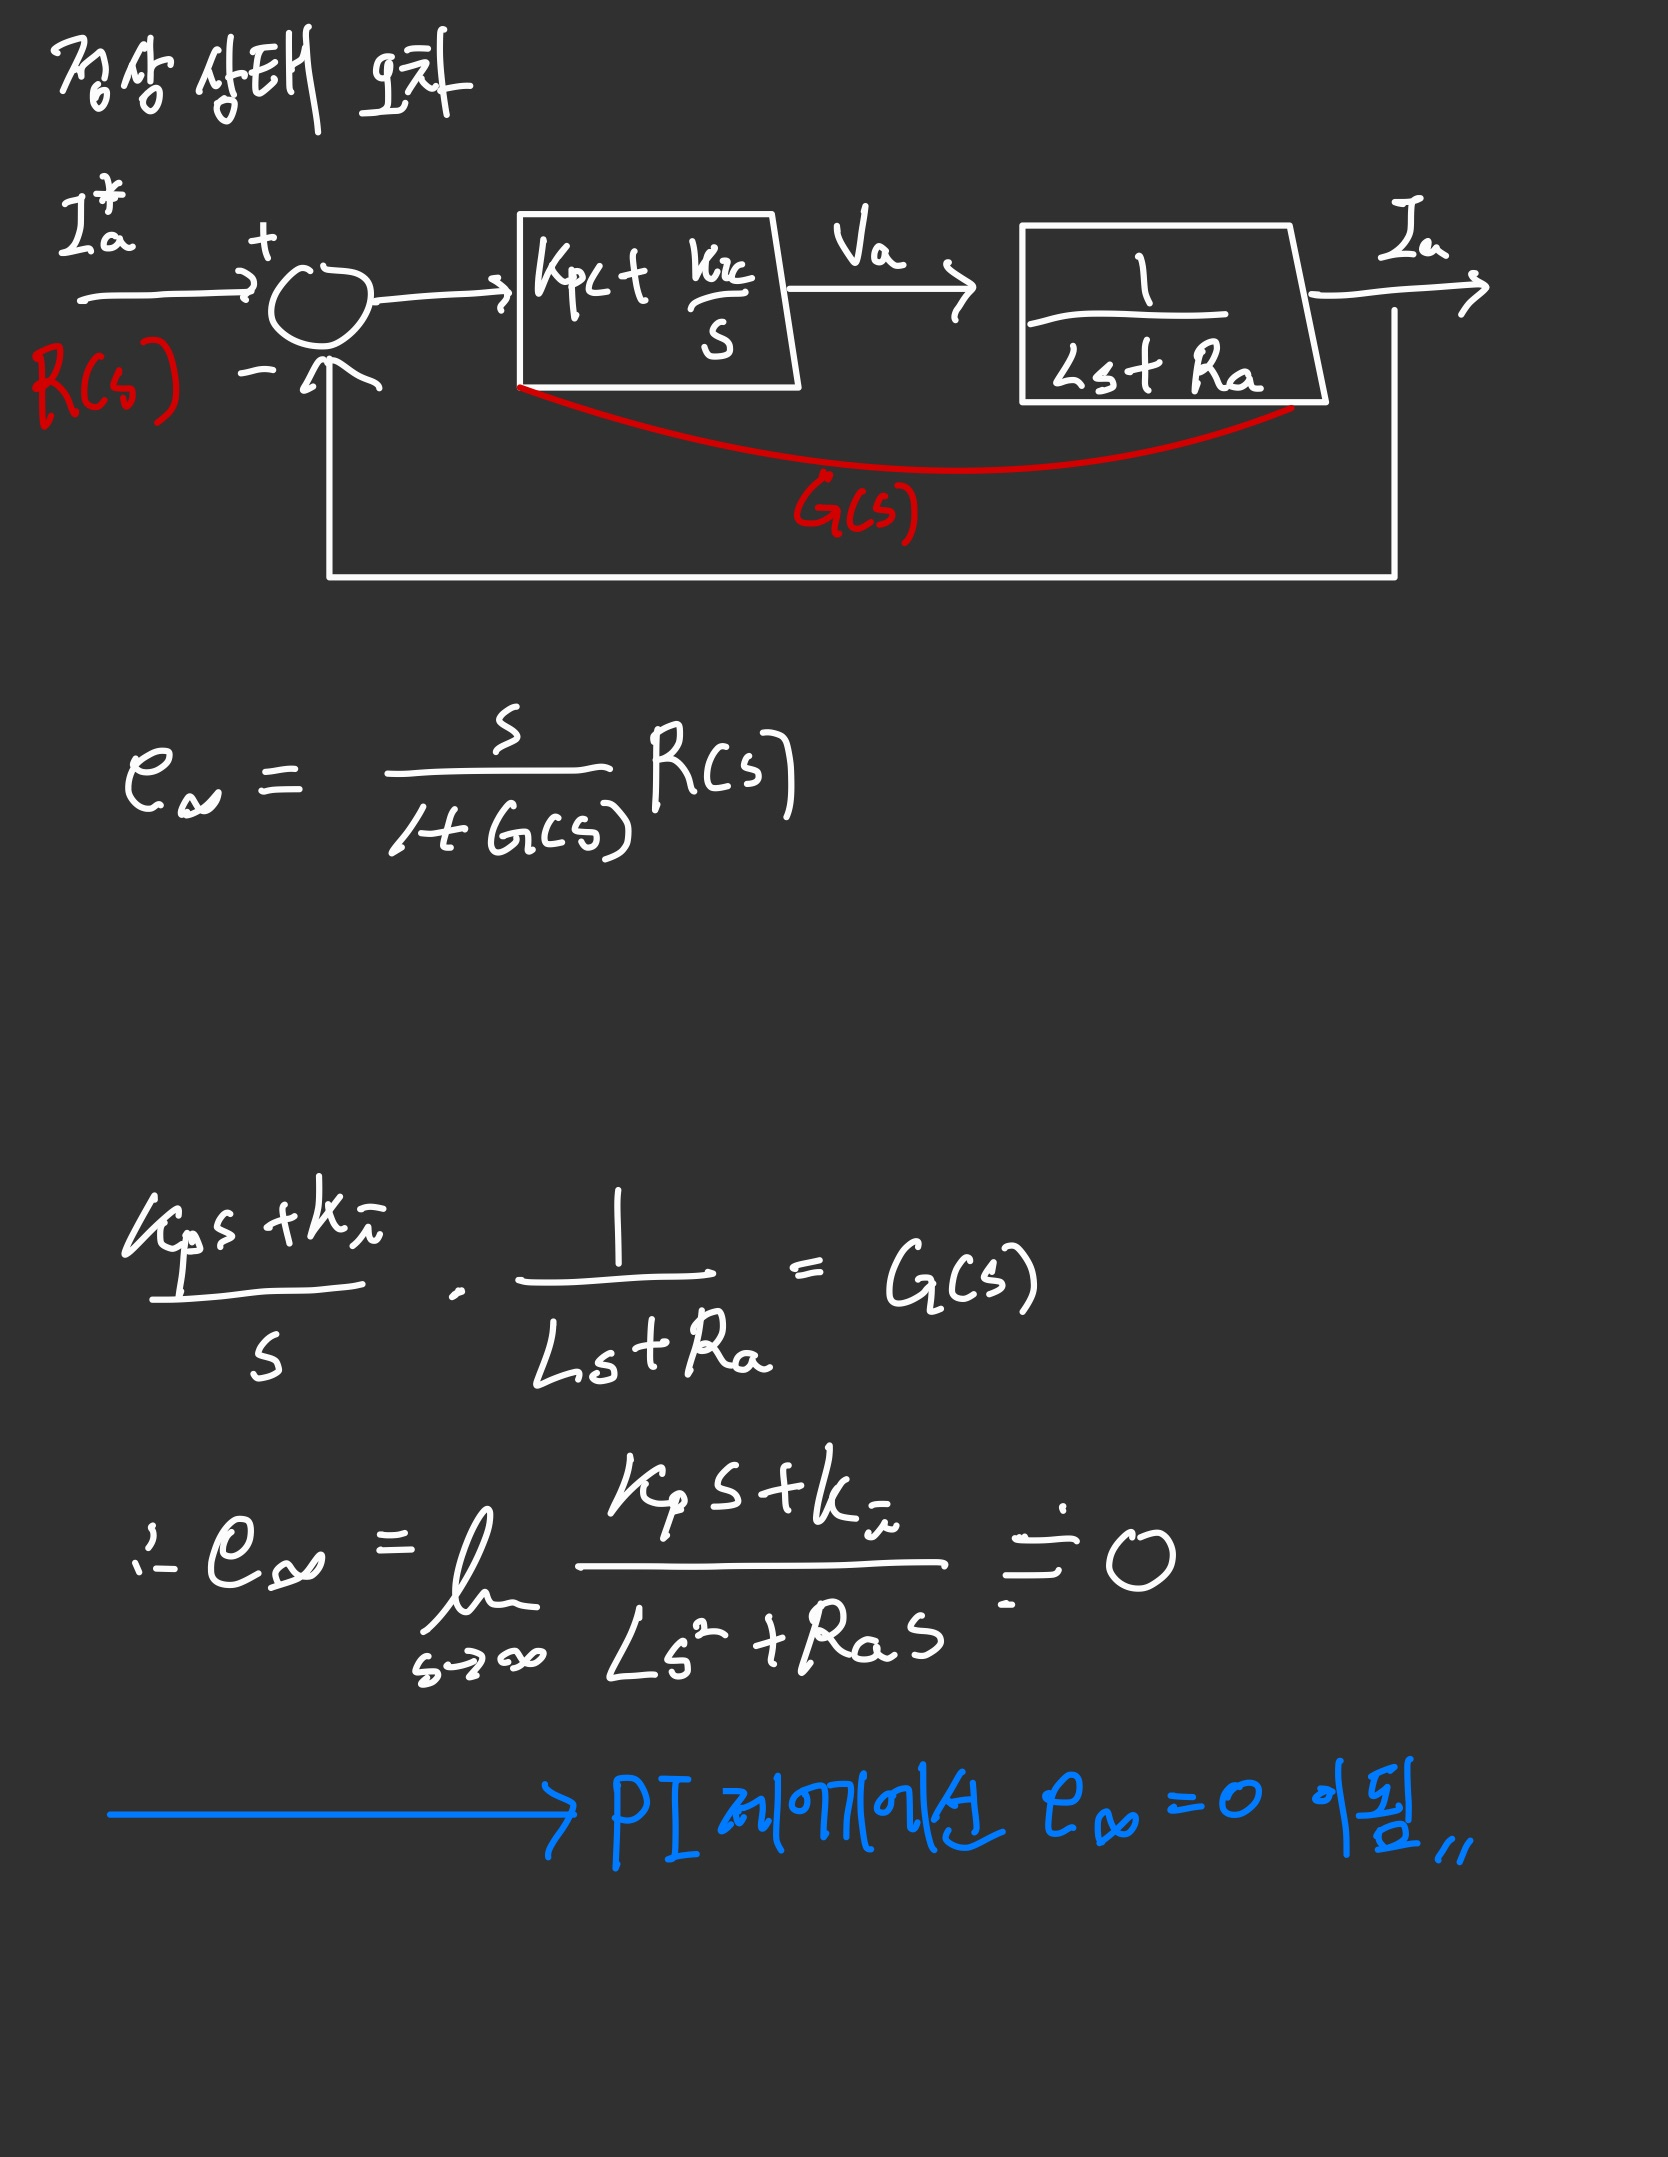 정상 상태 오차
I*a + Kpc + Kic/S Va 1/(Ls + Ra) Ia
R(s) −
G(s)
e∞ = s/(1+G(s)) R(s)
(Kps + Ki)/s · 1/(Ls + Ra) = G(s)
∴ e∞ = lim s→∞ (Kp s + Ki)/(Ls² + Ra s) ≒ 0
→ PI 제어에선 e∞ = 0 임 〃